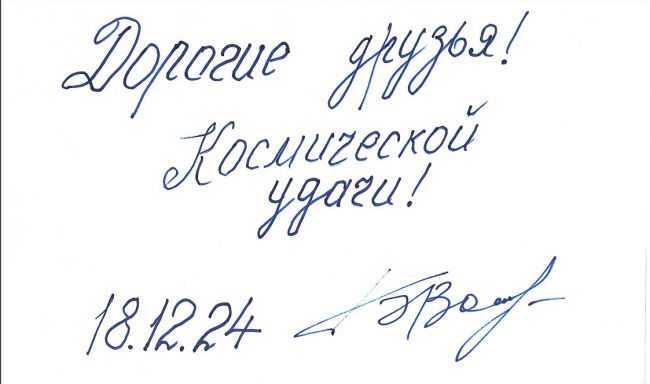 Дорогие друзья!
Космической
удачи!
18.12.24